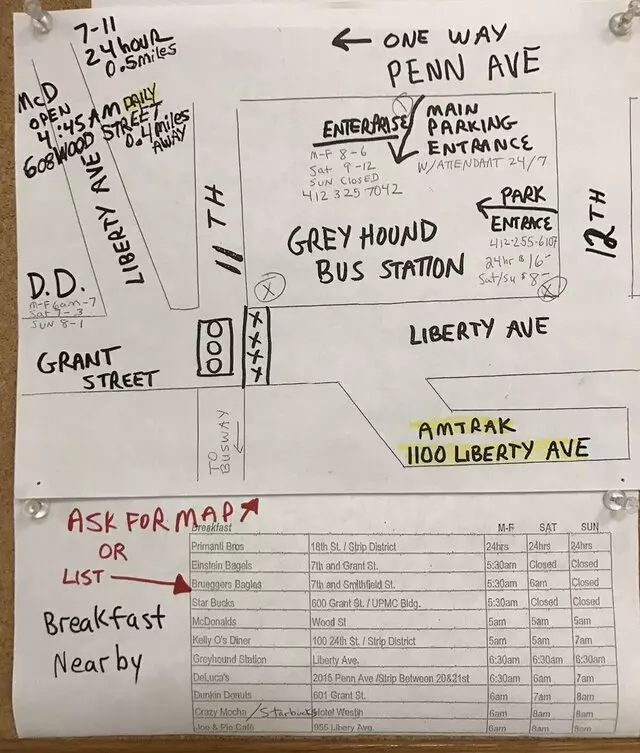 7-11
24 hour
0.5 miles
← ONE WAY
PENN AVE
McD
OPEN
4:45 AM DAILY
608 WOOD STREET
0.4 miles
AWAY
LIBERTY AVE
11TH
ENTERPRISE
M-F 8-6
Sat 9-12
SUN Closed
412 325 7042
MAIN
PARKING
ENTRANCE
W/ATTENDANT 24/7
PARK
ENTRACE
412-255-6107
24hr $16-
Sat/Su $8-
12TH
GREYHOUND
BUS STATION
D.D.
M-F 6am-7
Sat 7-3
SUN 8-1
LIBERTY AVE
GRANT
STREET
TO
BUSWAY
AMTRAK
1100 LIBERTY AVE
ASK FOR MAP
OR
LIST
Breakfast
Nearby
Breakfast M-F SAT SUN
Primanti Bros 18th St. / Strip District 24hrs 24hrs 24hrs
Einstein Bagels 7th and Grant St. 5:30am Closed Closed
Brueggers Bagles 7th and Smithfield St. 5:30am 6am Closed
Star Bucks 600 Grant St. / UPMC Bldg. 5:30am Closed Closed
McDonalds Wood St 5am 5am 5am
Kelly O's Diner 100 24th St. / Strip District 5am 5am 7am
Greyhound Station Liberty Ave. 6:30am 6:30am 6:30am
DeLuca's 2015 Penn Ave /Strip Between 20&21st 6:30am 6am 7am
Dunkin Donuts 601 Grant St. 6am 7am 8am
Crazy Mocha /Starbucks Hotel Westin 6am 8am 8am
Joe & Pie Café 955 Libery Ave. 6am 8am 8am